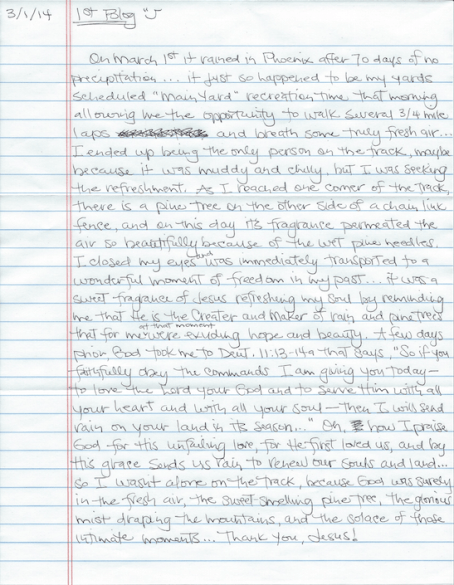 3/1/14 1st Blog "J
On March 1st it rained in Phoenix after 70 days of no
precipitation... it just so happened to be my yards
scheduled "Main Yard" recreation time that morning
allowing me the opportunity to walk several 3/4 mile
laps and breath some truly fresh air...
I ended up being the only person on the track, maybe
because it was muddy and chilly, but I was seeking
the refreshment. As I reached one corner of the track,
there is a pine tree on the other side of a chain link
fence, and on this day its fragrance permeated the
air so beautifully because of the wet pine needles.
I closed my eyes and was immediately transported to a
wonderful moment of freedom in my past... it was a
sweet fragrance of Jesus refreshing my soul by reminding
me that He is the Creater and Maker of rain and pine trees
that for me at that moment were exuding hope and beauty. A few days
prior God took me to Deut. 11:13-14a that says, "So if you
faithfully obey the commands I am giving you today-
to love the Lord your God and to serve Him with all
your heart and with all your soul - then I will send
rain on your land in its season..." Oh, how I praise
God for His unfailing love, for He first loved us, and by
His grace sends us rain to renew our souls and land...
so I wasn't alone on the track, because God was surely
in the fresh air, the sweet smelling pine tree, the glorious
mist draping the mountains, and the solace of those
intimate moments... Thank you, Jesus!